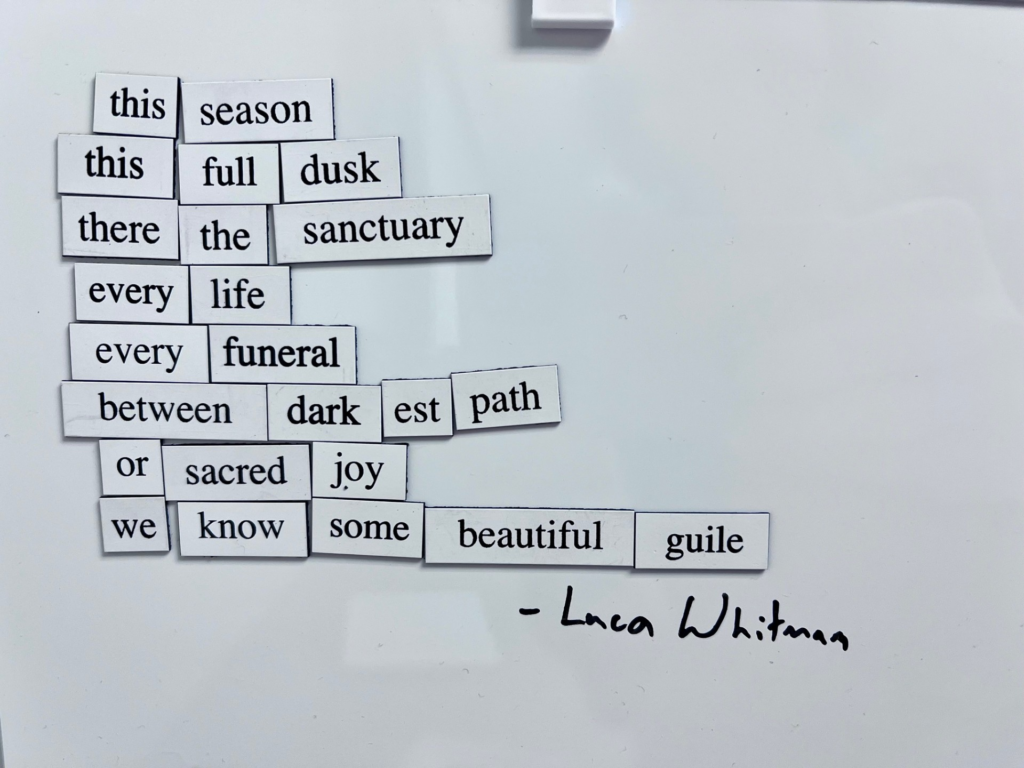 this season
this full dusk
there the sanctuary
every life
every funeral
between dark est path
or sacred joy
we know some beautiful guile
- Luca Whitman